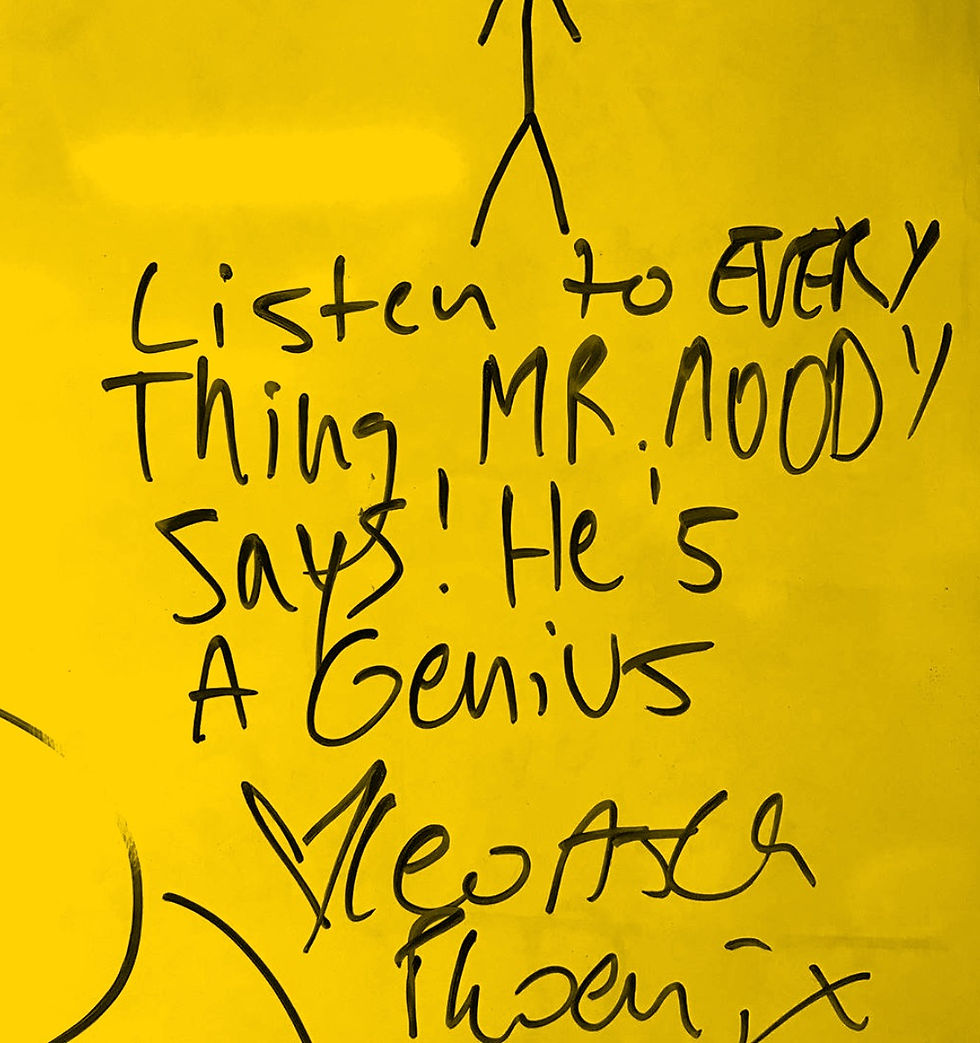 Listen to EVERY
Thing MR. MOODY
Says! He's
A Genius
Phoenix